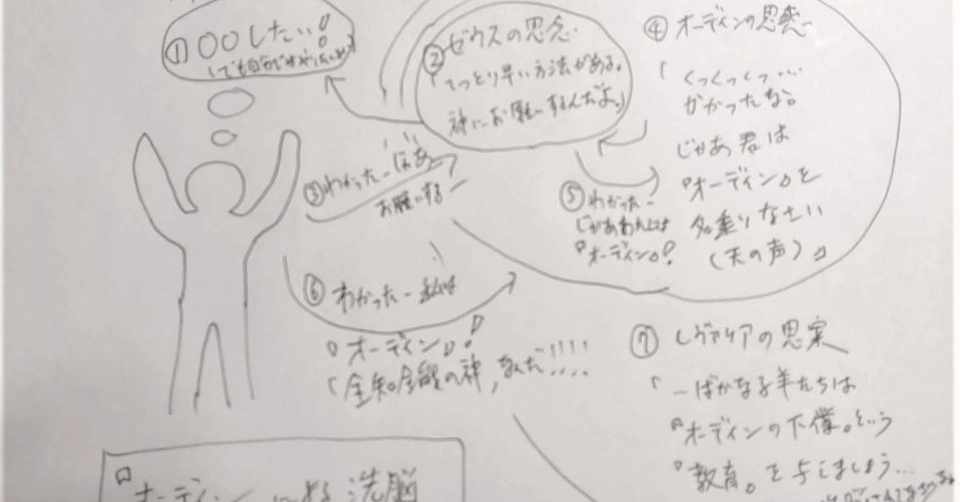 ① ○○したい!
② ゼウスの思念
てっとり早い方法がある。
神にお願いするんだよ。」
③ わかったーじゃあ
お願いする
④ オーディンの思惑
「くっくっくっ…
かかったな。
じゃあ君は
『オーディン』を
名乗りなさい
(天の声)」
⑤ わかったー
じゃあわたしは
『オーディン』!
⑥ わかったー私は
『オーディン』!
「全知全能の神」なんだ!!!!
⑦ レヴァリアの思案
「ーばかな子羊たちは
『オーディンの下僕』という
『教育』を与えましょう…
『オーディン 洗脳